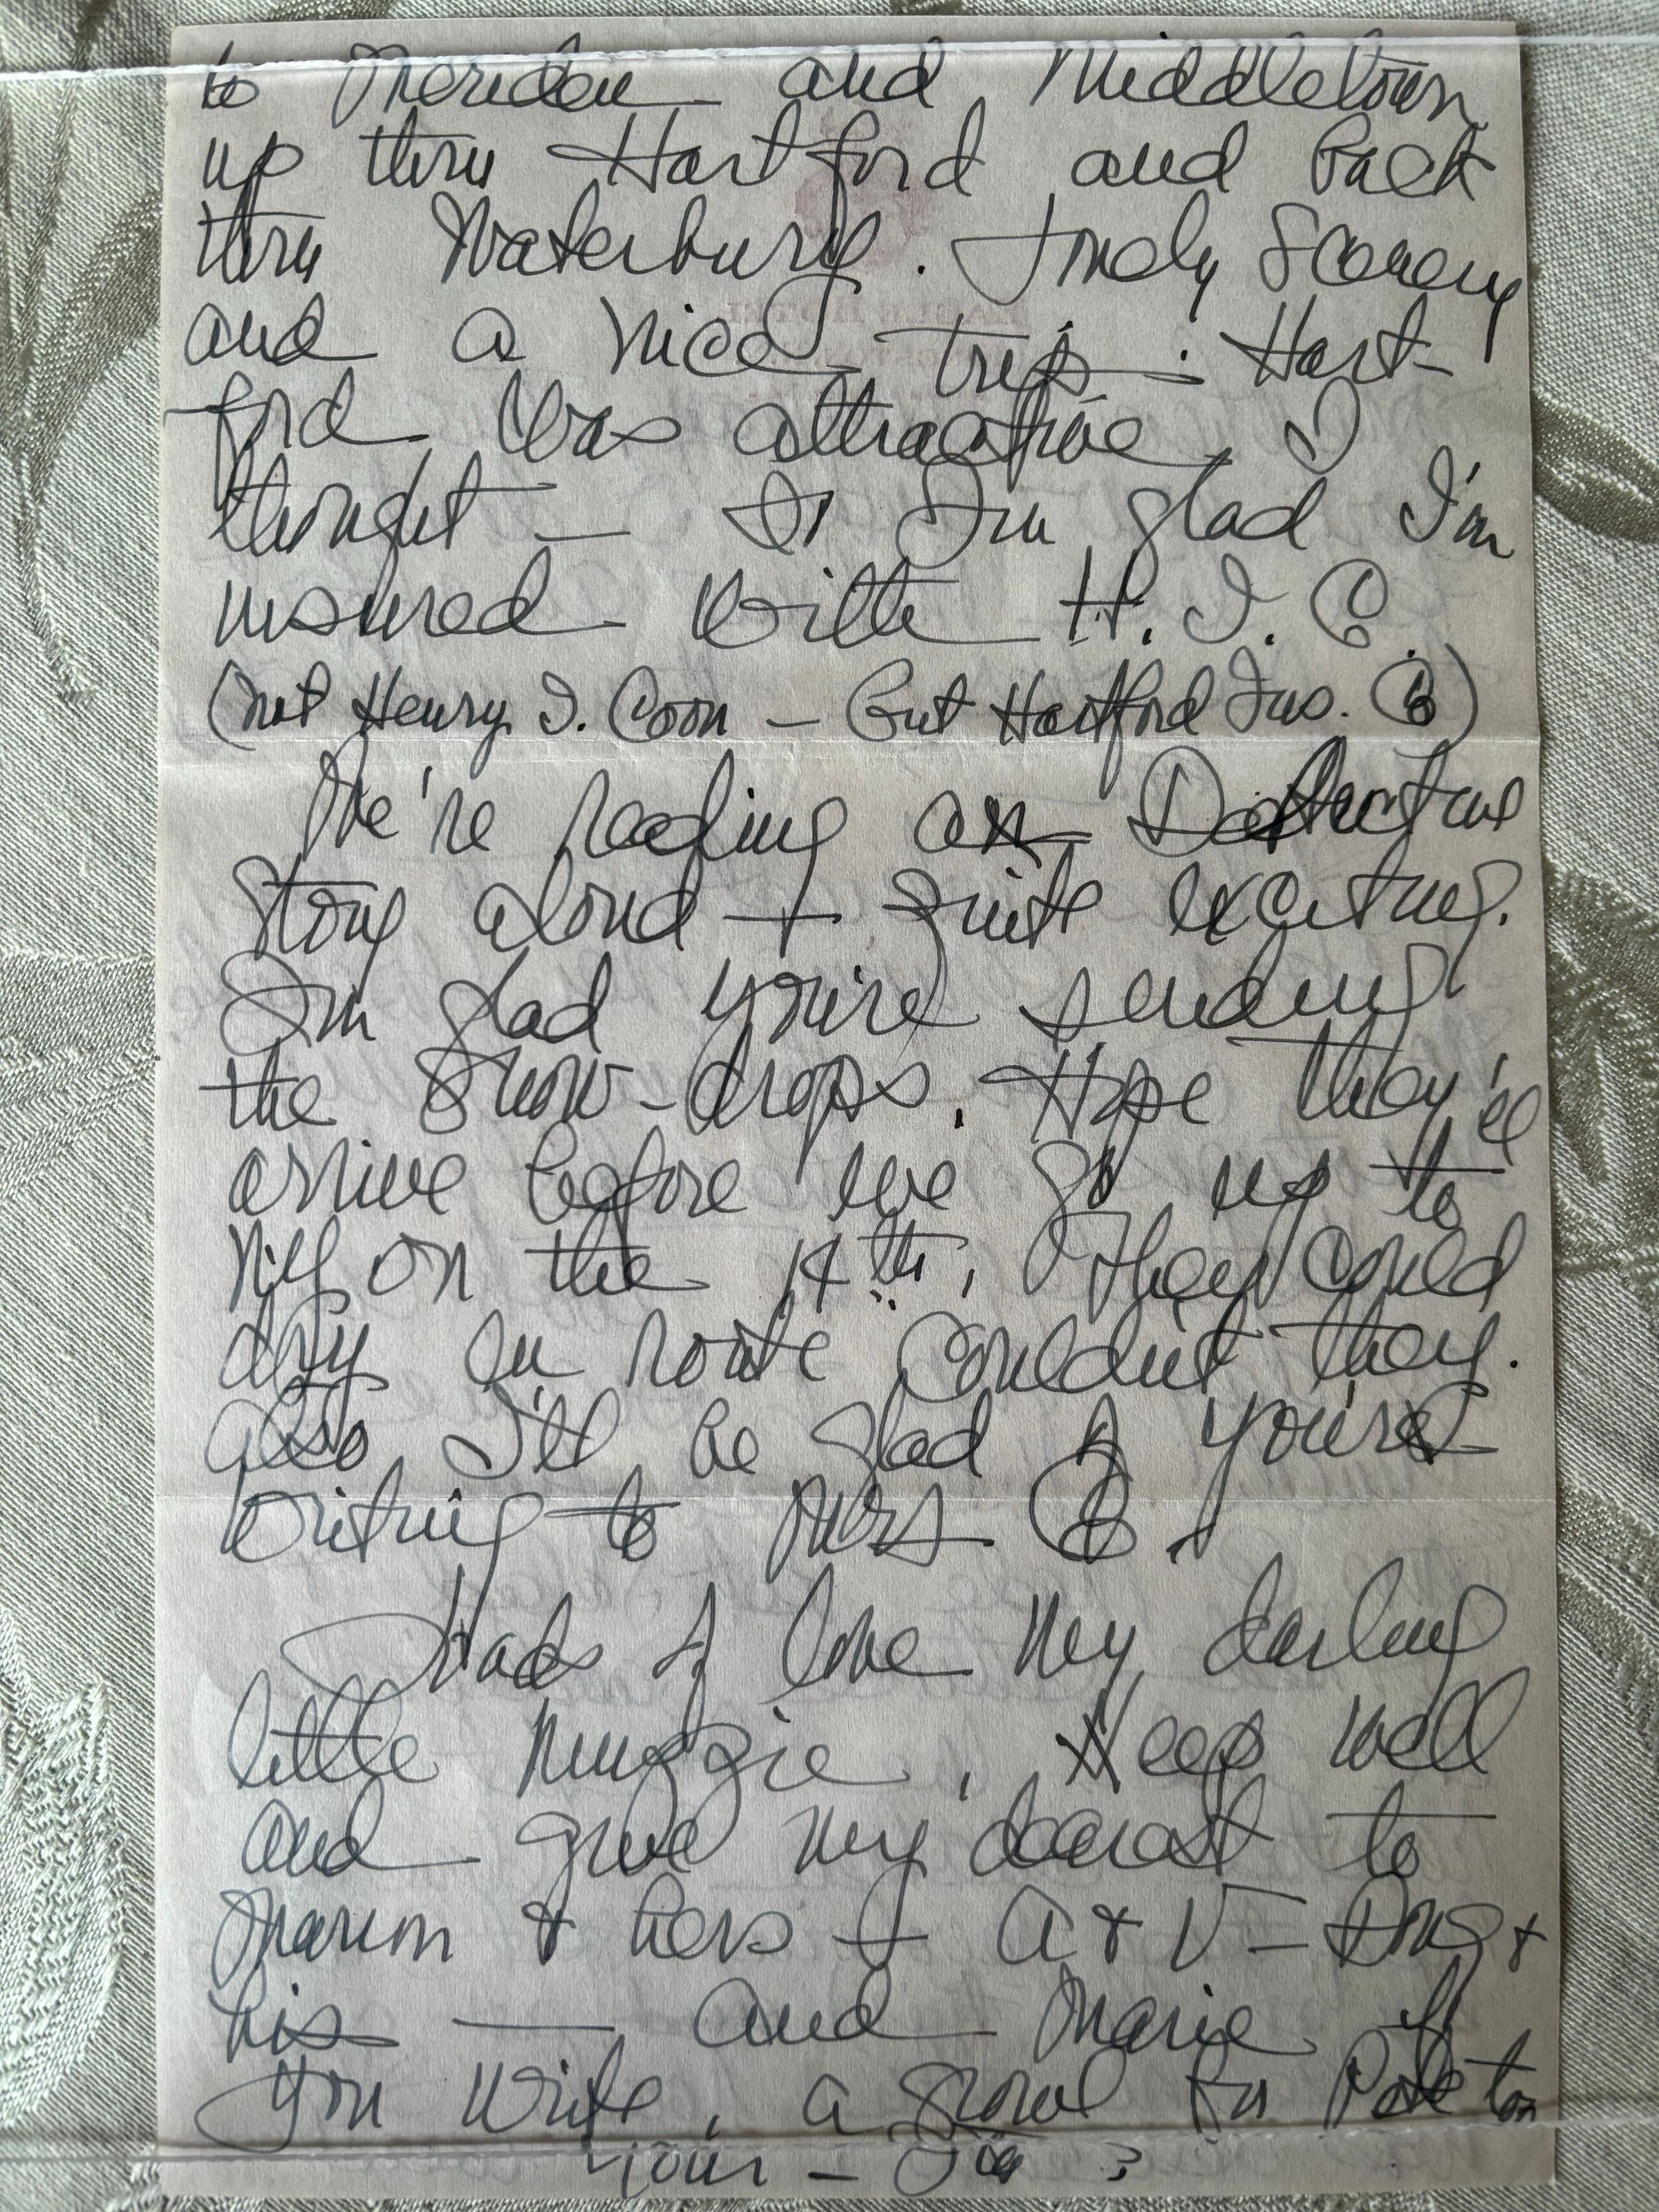 to Meriden and Middletown
up thru Hartford and back
thru Waterbury. Lovely Scenery
and a nice trip. Hart-
ford was attractive I
thought — I'm glad I'm
insured with H. I. C.
(not Henry I. Coon — but Hartford Ins. Co)
We're reading a Detective
Story aloud + quite exciting.
I'm glad you're sending
the Snow-drops. Hope they'll
arrive before we go up to
NY on the 14th. They could
dry en route couldn't they.
Also I'll be glad if you're
writing to Mrs B.
Loads of love my darling
little muggie. Keep well
and give my dearest to
Marion & hers + A & V — Doug &
his — and Marie if
you write. a growl for
Your —